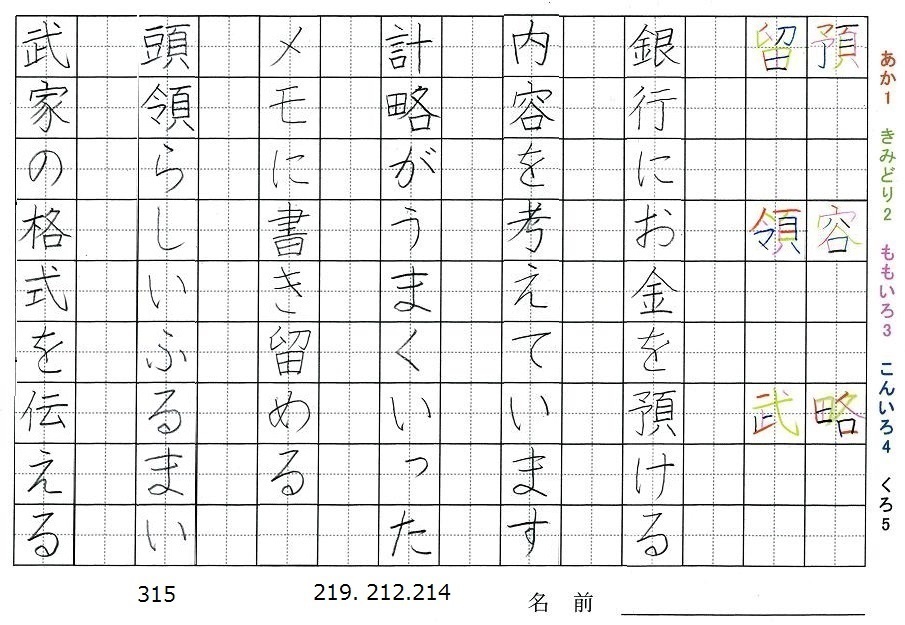 あか1 きみどり2 ももいろ3 こんいろ4 くろ5
預 容 略
留 領 武
銀行にお金を預ける
内容を考えています
計略がうまくいった
メモに書き留める
頭領らしいふるまい
武家の格式を伝える
315
219. 212.214
名前